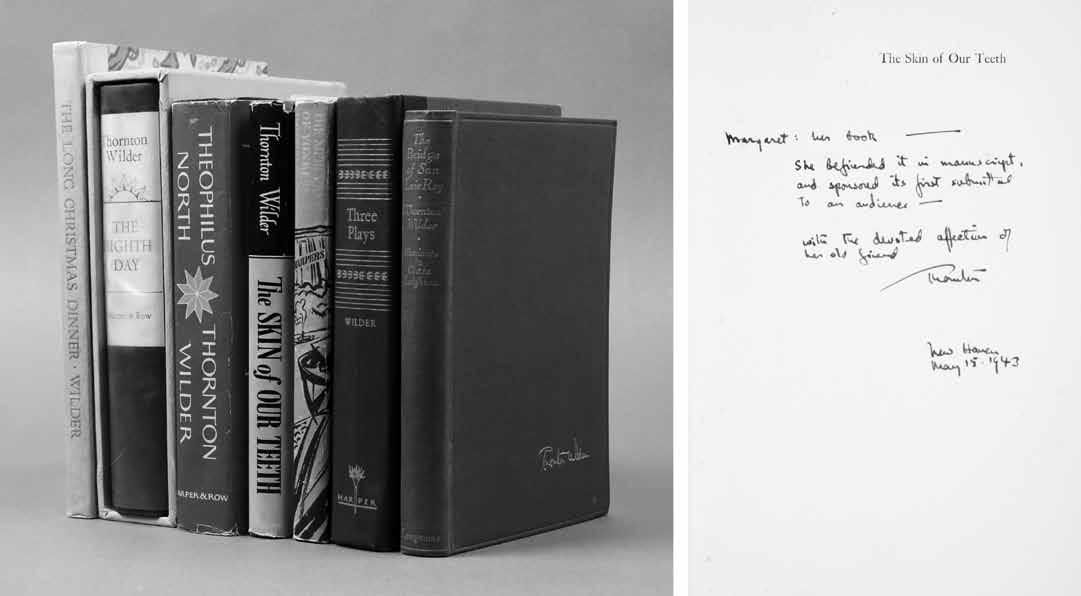 THE LONG CHRISTMAS DINNER · WILDER
Thornton
Wilder
THE
EIGHTH
DAY
Harper & Row
THEOPHILUS
NORTH
THORNTON
WILDER
HARPER & ROW
Thornton Wilder
The SKIN of OUR TEETH
HARPERS
Three
Plays
WILDER
HARPER
The
Bridge
of San
Luis Rey
Thornton
Wilder
Longmans
Thornton Wilder
The Skin of Our Teeth
Margaret: her book —
She befriended it in manuscript,
and sponsored its first submittal
to an audience —
with the devoted affection of
her old friend
Thornton
New Haven
May 15 · 1943